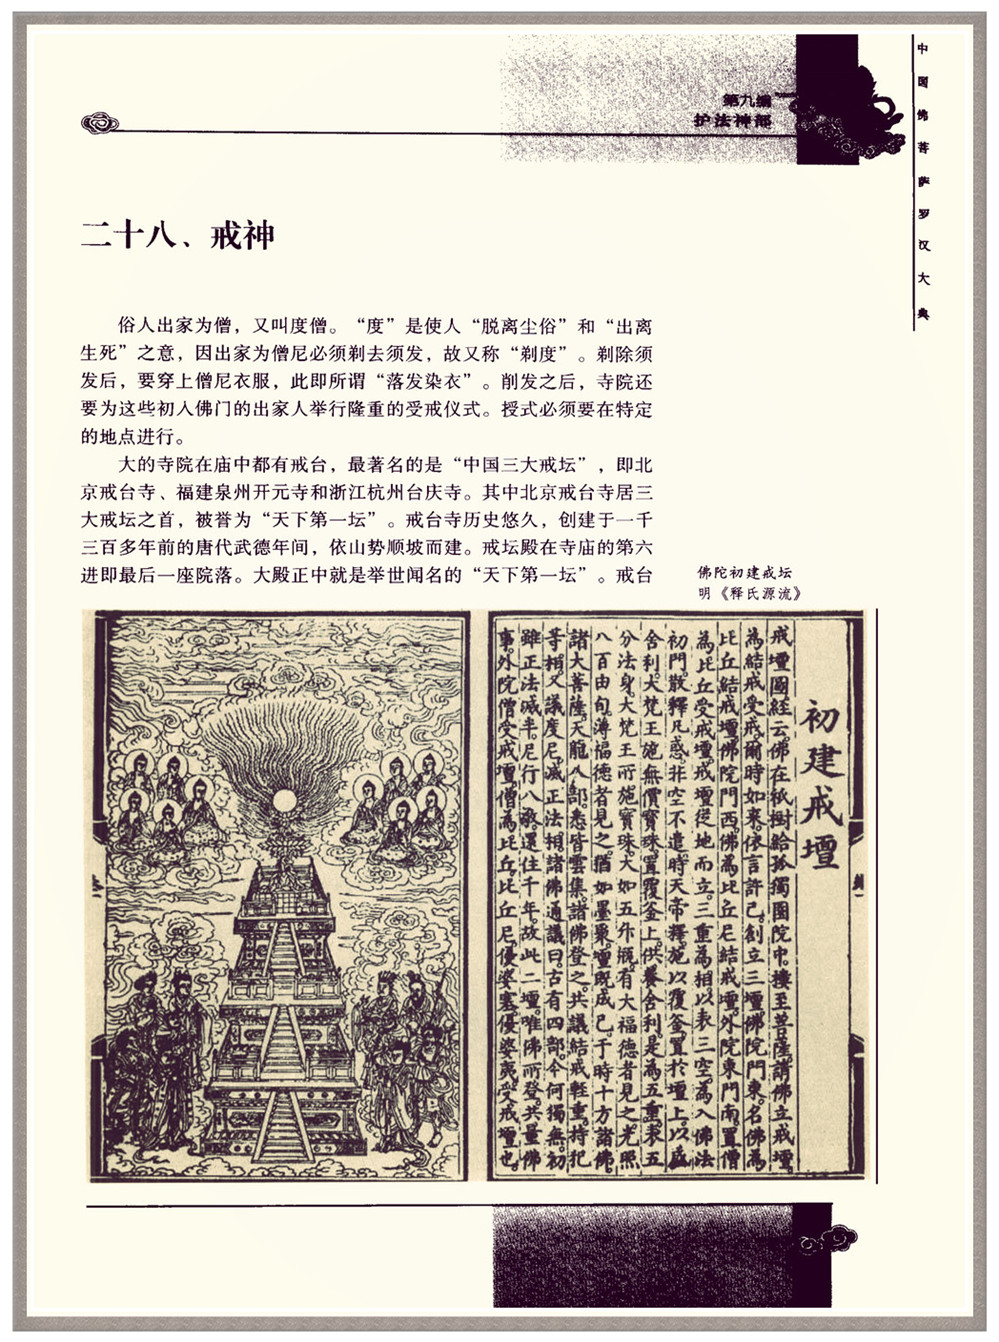 第九编
护法神部
中国佛菩萨罗汉大典
二十八、戒神
俗人出家为僧，又叫度僧。“度”是使人“脱离尘俗”和“出离
生死”之意，因出家为僧尼必须剃去须发，故又称“剃度”。剃除须
发后，要穿上僧尼衣服，此即所谓“落发染衣”。削发之后，寺院还
要为这些初入佛门的出家人举行隆重的受戒仪式。授式必须要在特定
的地点进行。
大的寺院在庙中都有戒台，最著名的是“中国三大戒坛”，即北
京戒台寺、福建泉州开元寺和浙江杭州台庆寺。其中北京戒台寺居三
大戒坛之首，被誉为“天下第一坛”。戒台寺历史悠久，创建于一千
三百多年前的唐代武德年间，依山势顺坡而建。戒坛殿在寺庙的第六
进即最后一座院落。大殿正中就是举世闻名的“天下第一坛”。戒台
佛陀初建戒坛
明《释氏源流》
初建戒壇
戒壇圖經云佛在祇樹給孤獨園院中樓至菩薩請佛立戒壇
為結戒受戒爾時如來依言許已創立三壇佛院門東名佛為
比丘結戒壇佛院門西佛為比丘尼結戒壇外院東門南置僧
為比丘受戒壇戒壇從地而立三重為相以表三空為入佛法
初門散釋凡惑非空不遣時天帝釋施以覆釜置於壇上以盛
舍利大梵王施無價寶珠置覆釜上供養舍利是為五重表五
分法身大梵王所施寶珠大如五斗瓶有大福德者見之光照
八百由旬薄福德者見之猶如墨聚壇既成已于時十方諸佛
諸大菩薩天龍八部悉皆雲集諸佛登之共議結戒輕重持犯
等相又議度尼滅正法相諸佛通議曰古有四部今何獨無初
雖正法減半尼行八敬還住千年故此二壇唯佛所登共量佛
事外院僧受戒壇僧為比丘比丘尼優婆塞優婆夷受戒壇也